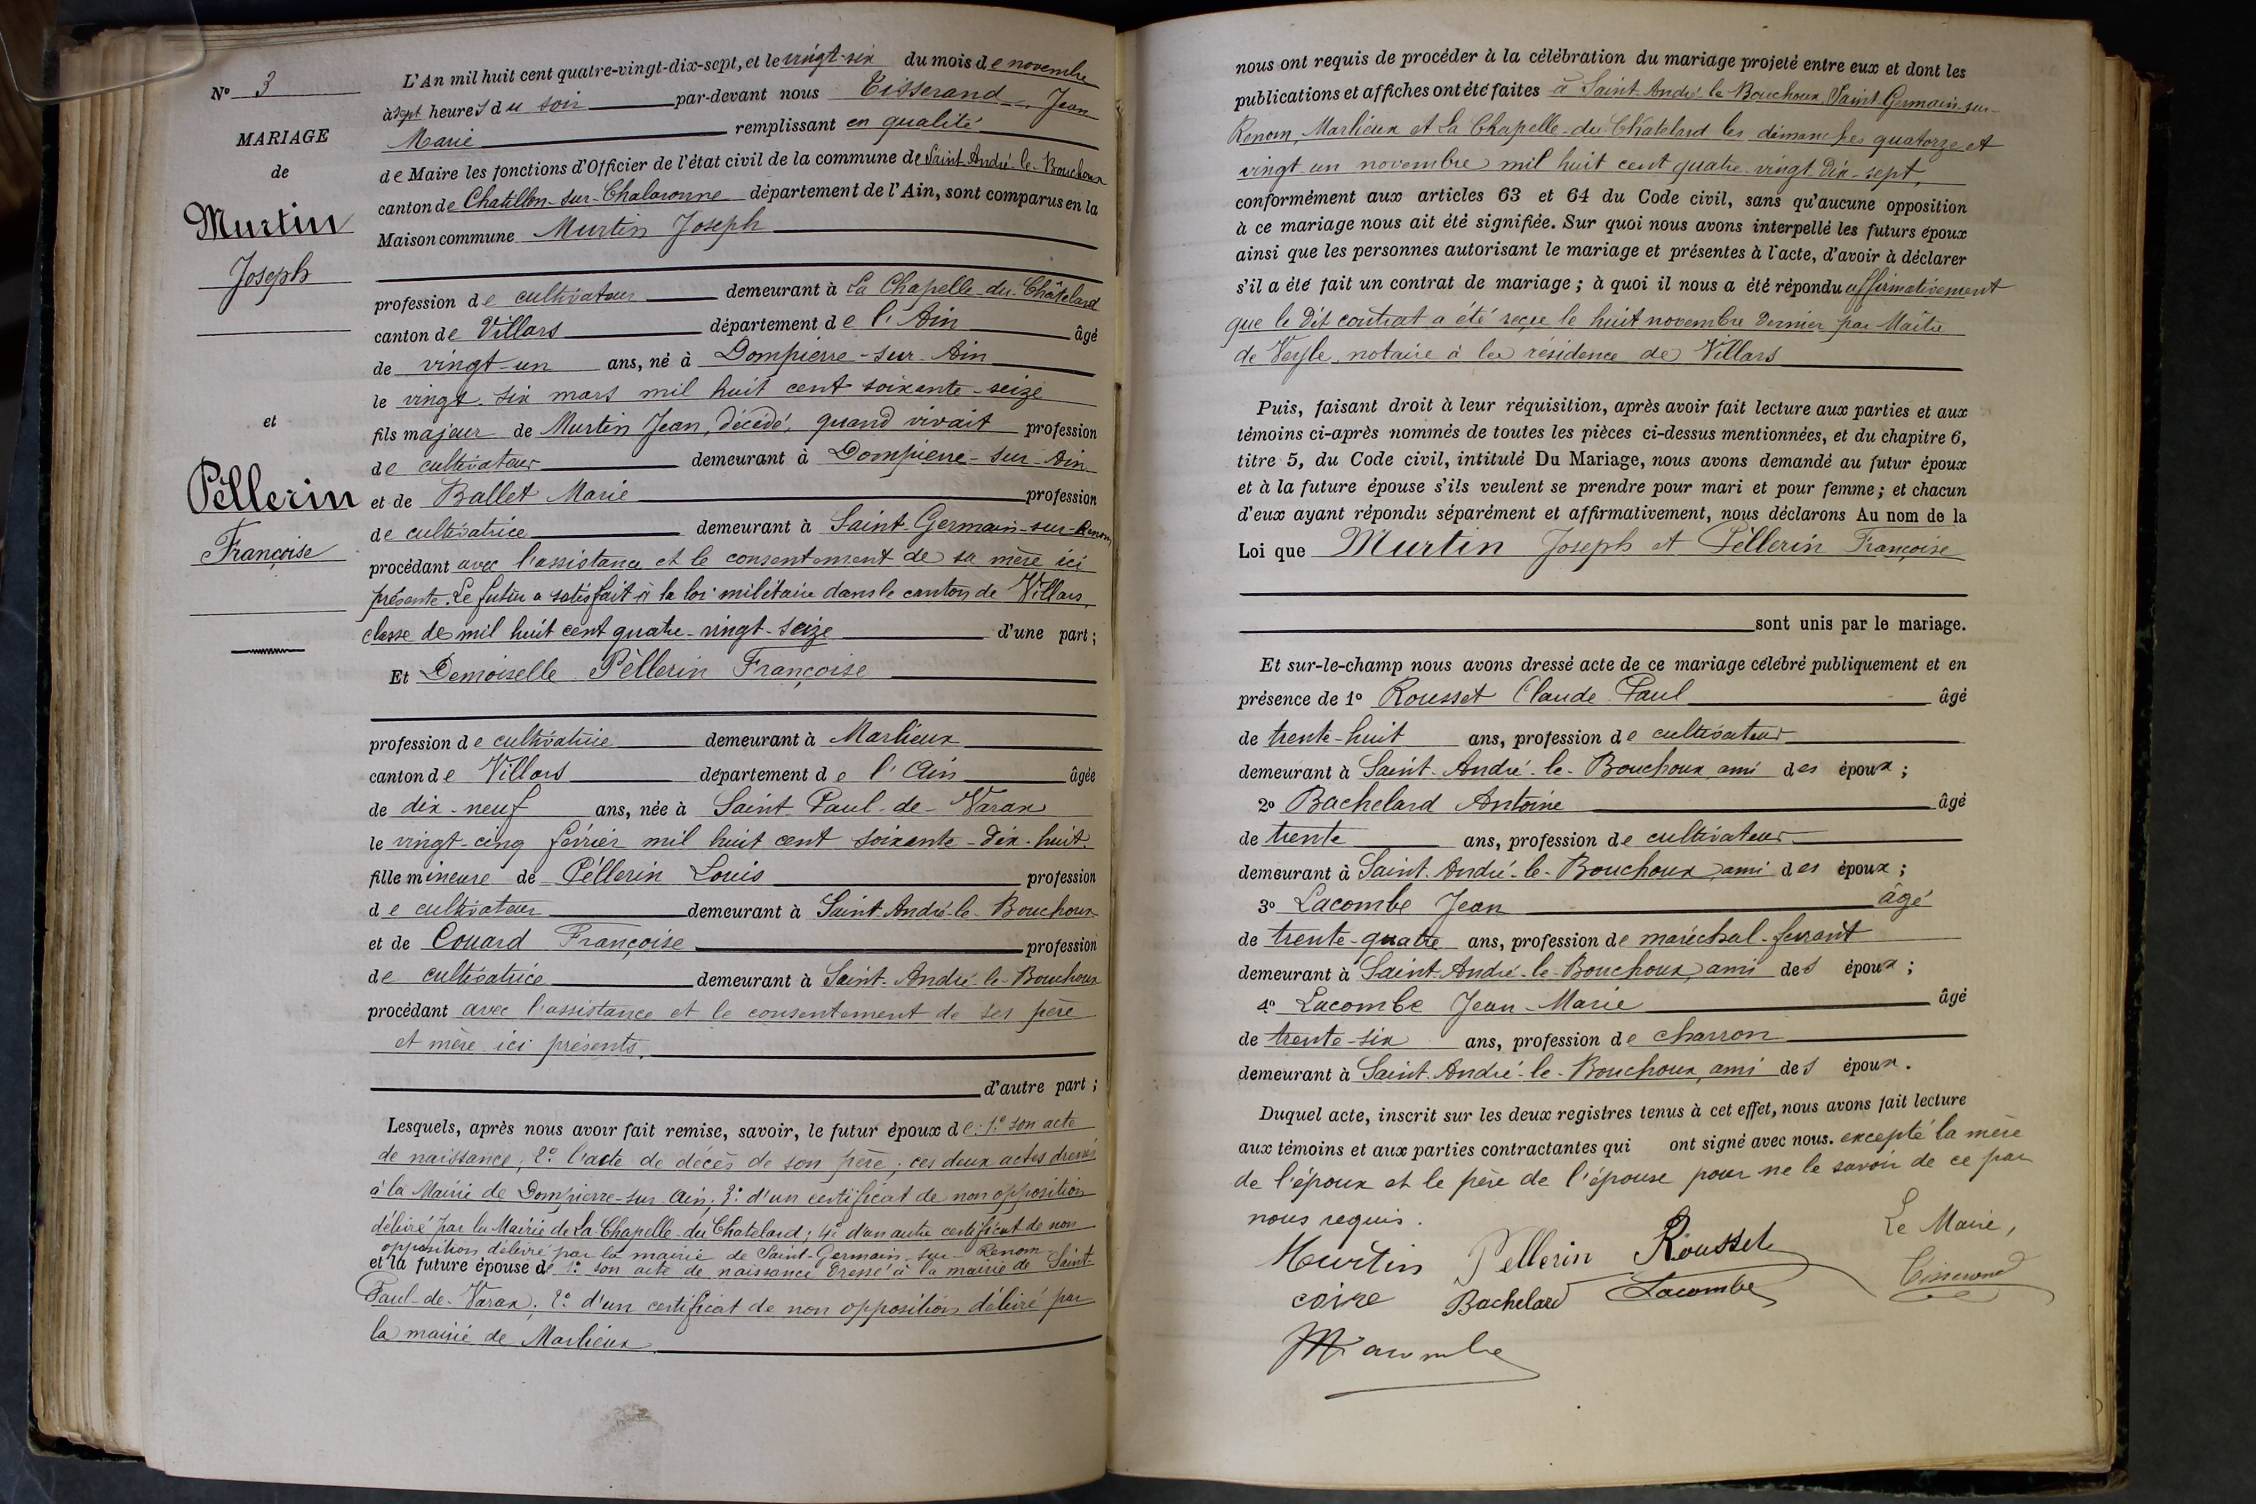 N° 3
MARIAGE
de
Murtin
Joseph
et
Pèllerin
Françoise
L'An mil huit cent quatre-vingt-dix-sept, et le vingt-six du mois de novembre
à sept heures du soir par-devant nous Tisserand Jean
Marie remplissant en qualité
de Maire les fonctions d'Officier de l'état civil de la commune de Saint-André-le-Bouchoux
canton de Chatillon-sur-Chalaronne département de l'Ain, sont comparus en la
Maison commune Murtin Joseph
profession de cultivateur demeurant à La Chapelle-du-Châtelard
canton de Villars département de l'Ain âgé
de vingt-un ans, né à Dompierre-sur-Ain
le vingt-six mars mil huit cent soixante-seize
fils majeur de Murtin Jean, décédé, quand vivait profession
de cultivateur demeurant à Dompierre-sur-Ain
et de Ballet Marie profession
de cultivatrice demeurant à Saint-Germain-sur-Renom,
procédant avec l'assistance et le consentement de sa mère ici
présente. Le futur a satisfait à la loi militaire dans le canton de Villars,
classe de mil huit cent quatre-vingt-seize d'une part ;
Et Demoiselle Pèllerin Françoise
profession de cultivatrice demeurant à Marlieux
canton de Villars département de l'Ain âgée
de dix-neuf ans, née à Saint-Paul-de-Varax
le vingt-cinq février mil huit cent soixante-dix-huit
fille mineure de Pèllerin Louis profession
de cultivateur demeurant à Saint-André-le-Bouchoux
et de Couard Françoise profession
de cultivatrice demeurant à Saint-André-le-Bouchoux
procédant avec l'assistance et le consentement de ses père
et mère ici présents,
d'autre part ;
Lesquels, après nous avoir fait remise, savoir, le futur époux de : 1° son acte
de naissance ; 2° l'acte de décès de son père ; ces deux actes dressés
à la Mairie de Dompierre-sur-Ain ; 3° d'un certificat de non opposition
délivré par la Mairie de La Chapelle-du-Chatelard ; 4° d'un autre certificat de non
opposition délivré par la mairie de Saint-Germain-sur-Renom
et la future épouse de 1° son acte de naissance dressé à la mairie de Saint-
Paul-de-Varax ; 2° d'un certificat de non opposition délivré par
la mairie de Marlieux
nous ont requis de procéder à la célébration du mariage projeté entre eux et dont les
publications et affiches ont été faites à Saint-André-le-Bouchoux, Saint-Germain-sur-
Renom, Marlieux et La Chapelle-du-Châtelard les dimanches quatorze et
vingt un novembre mil huit cent quatre-vingt-dix-sept,
conformément aux articles 63 et 64 du Code civil, sans qu'aucune opposition
à ce mariage nous ait été signifiée. Sur quoi nous avons interpellé les futurs époux
ainsi que les personnes autorisant le mariage et présentes à l'acte, d'avoir à déclarer
s'il a été fait un contrat de mariage ; à quoi il nous a été répondu affirmativement
que le dit contrat a été reçu le huit novembre dernier par Maître
de Veyle, notaire à la résidence de Villars
Puis, faisant droit à leur réquisition, après avoir fait lecture aux parties et aux
témoins ci-après nommés de toutes les pièces ci-dessus mentionnées, et du chapitre 6,
titre 5, du Code civil, intitulé Du Mariage, nous avons demandé au futur époux
et à la future épouse s'ils veulent se prendre pour mari et pour femme ; et chacun
d'eux ayant répondu séparément et affirmativement, nous déclarons Au nom de la
Loi que Murtin Joseph et Pèllerin Françoise
sont unis par le mariage.
Et sur-le-champ nous avons dressé acte de ce mariage célébré publiquement et en
présence de 1° Rousset Claude Paul âgé
de trente-huit ans, profession de cultivateur
demeurant à Saint-André-le-Bouchoux ami des époux ;
2° Bachelard Antoine âgé
de trente ans, profession de cultivateur
demeurant à Saint-André-le-Bouchoux ami des époux ;
3° Lacombe Jean âgé
de trente-quatre ans, profession de maréchal-ferrant
demeurant à Saint-André-le-Bouchoux, ami des époux ;
4° Lacombe Jean-Marie âgé
de trente-six ans, profession de charron
demeurant à Saint-André-le-Bouchoux, ami des époux.
Duquel acte, inscrit sur les deux registres tenus à cet effet, nous avons fait lecture
aux témoins et aux parties contractantes qui ont signé avec nous. excepté la mère
de l'époux et le père de l'épouse pour ne le savoir de ce par
nous requis.
Le Maire,
Murtin Pellerin Rousset
Tisserand
Bachelard Lacombe
Lacombe